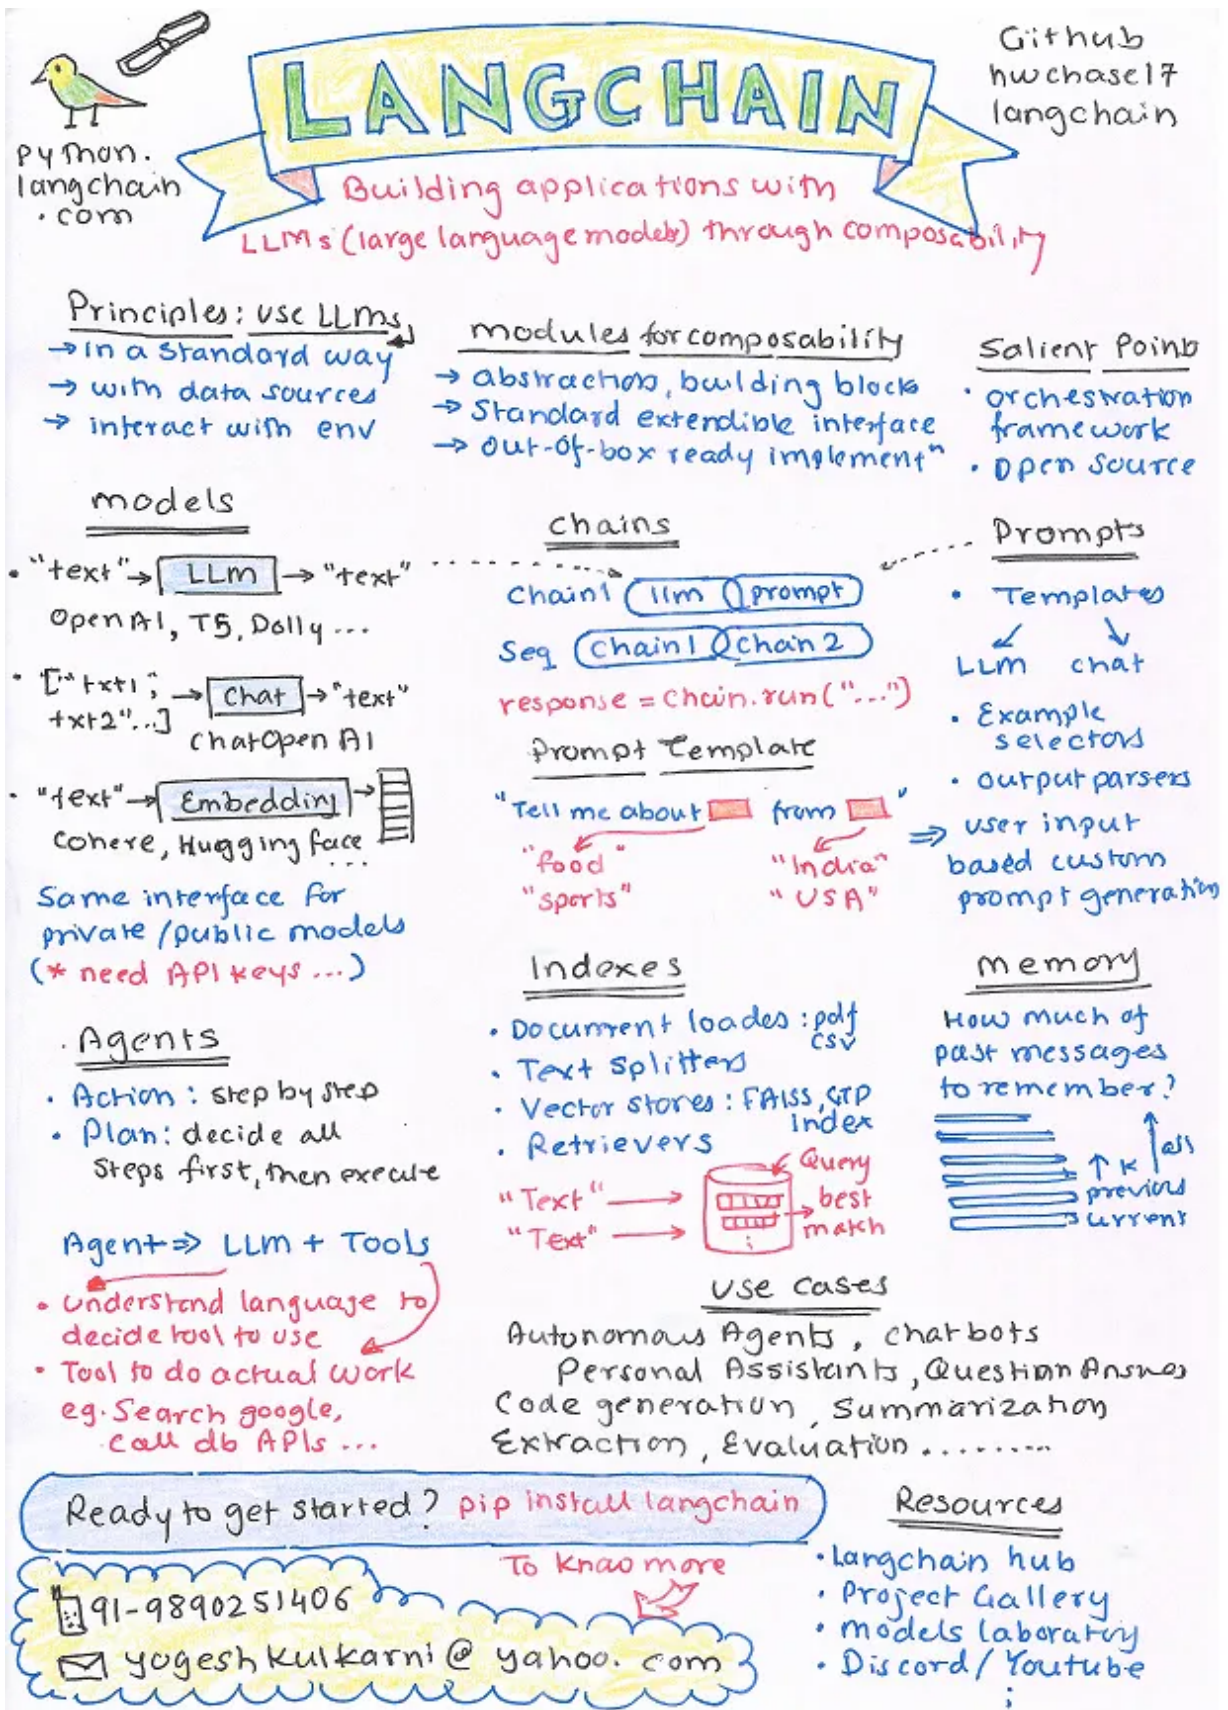 LANGCHAIN
Python.
langchain
.com
Github
hwchase17
langchain
Building applications with
LLMs (large language models) through composability
Principles: use LLMs
→ in a standard way
→ with data sources
→ interact with env
modules for composability
→ abstractions, building blocks
→ Standard extendible interface
→ out-of-box ready implementⁿ
Salient Points
• orchestration
framework
• open source
models
• "text" → LLm → "text"
OpenAI, T5, Dolly ...
• ["txt1",
txt2"...] → Chat → "text"
ChatOpenAI
• "text" → Embedding →
Cohere, Hugging face
...
Same interface for
private/public models
(* need API keys ...)
chains
Chain1 llm prompt
Seq chain1 chain2
response = chain.run("...")
Prompt Template
"Tell me about from "
"food" "India"
"sports" "USA"
Prompts
• Templates
LLM chat
• Example
selectors
• output parsers
⇒ user input
based custom
prompt generation
. Agents
• Action: step by step
• Plan: decide all
steps first, then execute
Agent ⇒ LLm + Tools
• understand language to
decide tool to use
• Tool to do actual work
eg. Search google,
call db APIs ...
Indexes
• Document loades: pdf
csv
• Text splitters
• Vector stores: FAISS, GTP
index
• Retrievers
"Text" → Query
"Text" → best
match
memory
How much of
past messages
to remember?
↑ all
↑ K
previous
current
use cases
Autonomous Agents, chatbots
Personal Assistants, Question Answer
Code generation, Summarization
Extraction, Evaluation .........
Ready to get started? pip install langchain
To know more
91-9890251406
yogeshkulkarni@yahoo.com
Resources
• langchain hub
• Project Gallery
• models laboratory
• Discord/Youtube